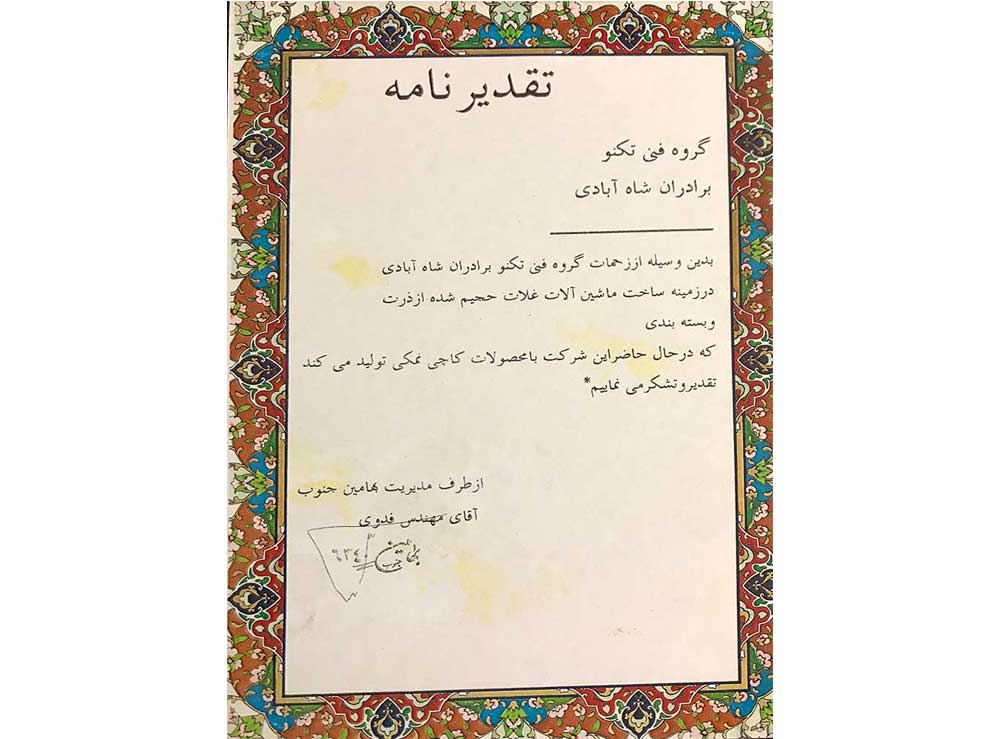 تقدیر نامه
گروه فنی تکنو
برادران شاه آبادی
بدین وسیله اززحمات گروه فنی تکنو برادران شاه آبادی
درزمینه ساخت ماشین آلات غلات حجیم شده ازذرت
وبسته بندی
که درحال حاضراین شرکت بامحصولات کاچی نمکی تولید می کند
تقدیروتشکرمی نماییم*
ازطرف مدیریت بهامین جنوب
آقای مهندس فدوی
بهامین
جنوب